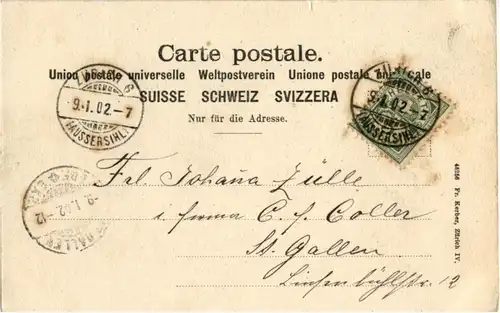 Carte postale.
Union postale universelle Weltpostverein Unione postale universale
SUISSE SCHWEIZ SVIZZERA
Nur für die Adresse.
ZÜRICH 6
9.I.02.-7
(AUSSERSIHL)
ZÜRICH 6
I.02.-7
(AUSSERSIHL)
Frl. Johana Zülle
i firma C. F. Coller
St. Gallen
Linsenbühlstr. 12
-9.I.02.-12
GALLEN
46256 Fr. Kerber, Zürich IV.